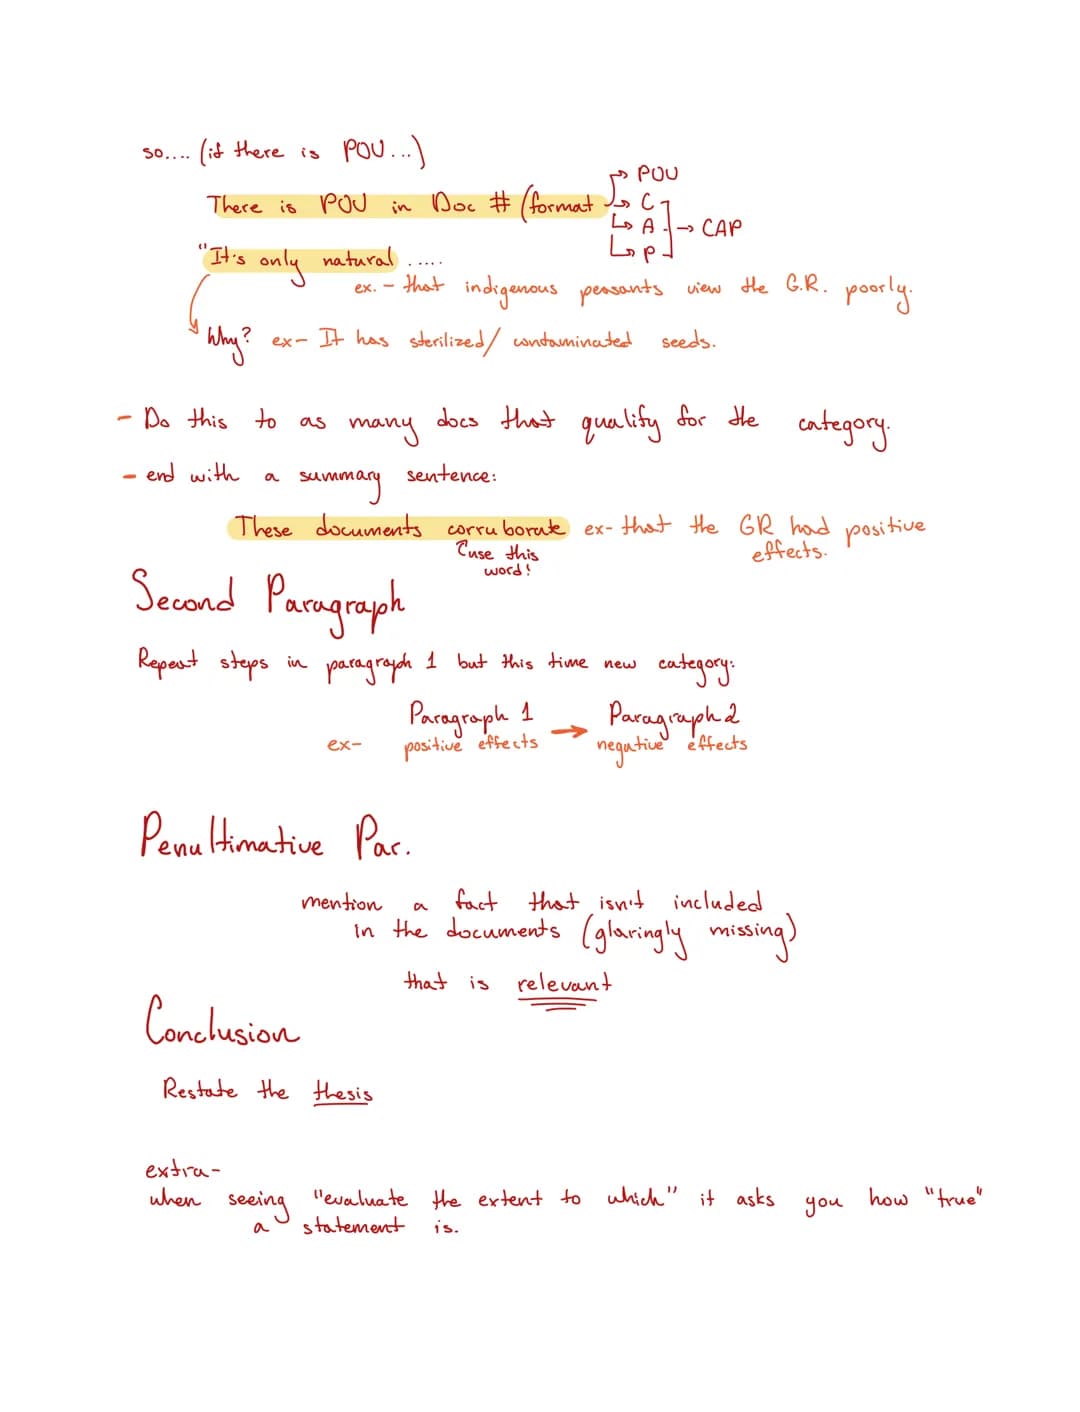 so.... (if there is POV...)
There is POV in Doc # (format → POV
↳ C
↳ A → CAP
↳ P
"It's only natural .....
ex. - that indigenous peasants view the G.R. poorly.
Why? ex- It has sterilized/ contaminated seeds.
- Do this to as many docs that qualify for the category.
- end with a summary sentence:
These documents corruborate ex- that the GR had positive effects.
↑ use this word!
Second Paragraph
Repeat steps in paragraph 1 but this time new category:
Paragraph 1 → Paragraph 2
ex- positive effects negative effects
Penultimative Par.
mention a fact that isn't included
in the documents (glaringly missing)
that is relevant
Conclusion
Restate the thesis
extra-
when seeing "evaluate the extent to which" it asks you how "true"
a statement is.